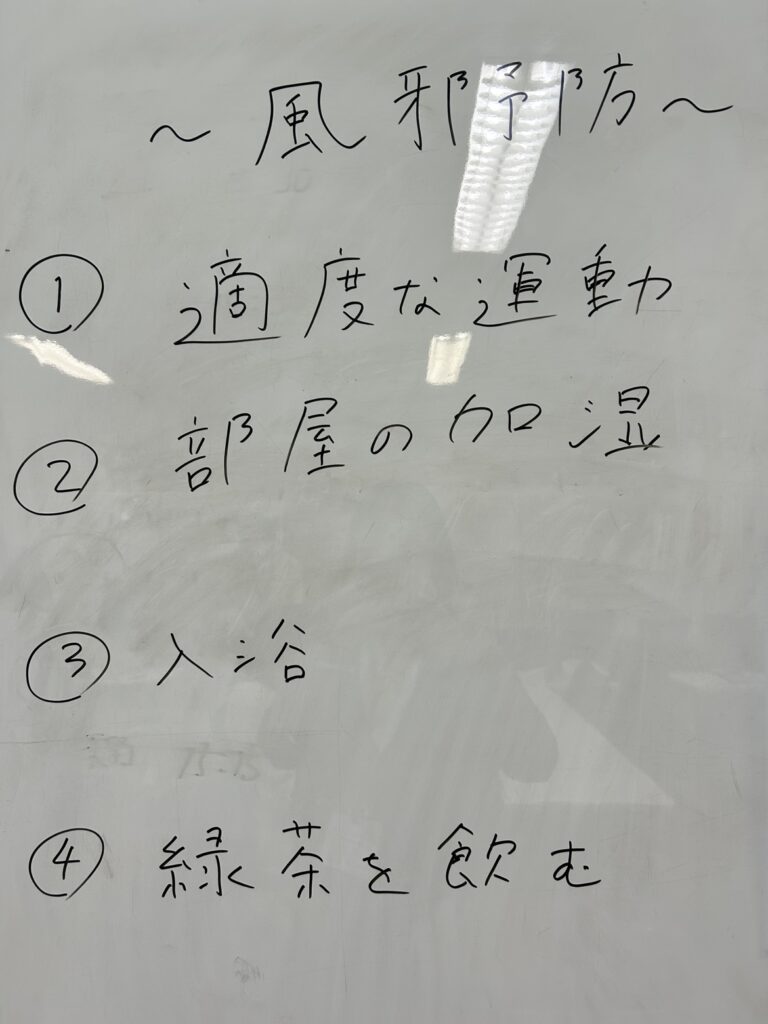 〜風邪予防〜
① 適度な運動
② 部屋の加湿
③ 入浴
④ 緑茶を飲む